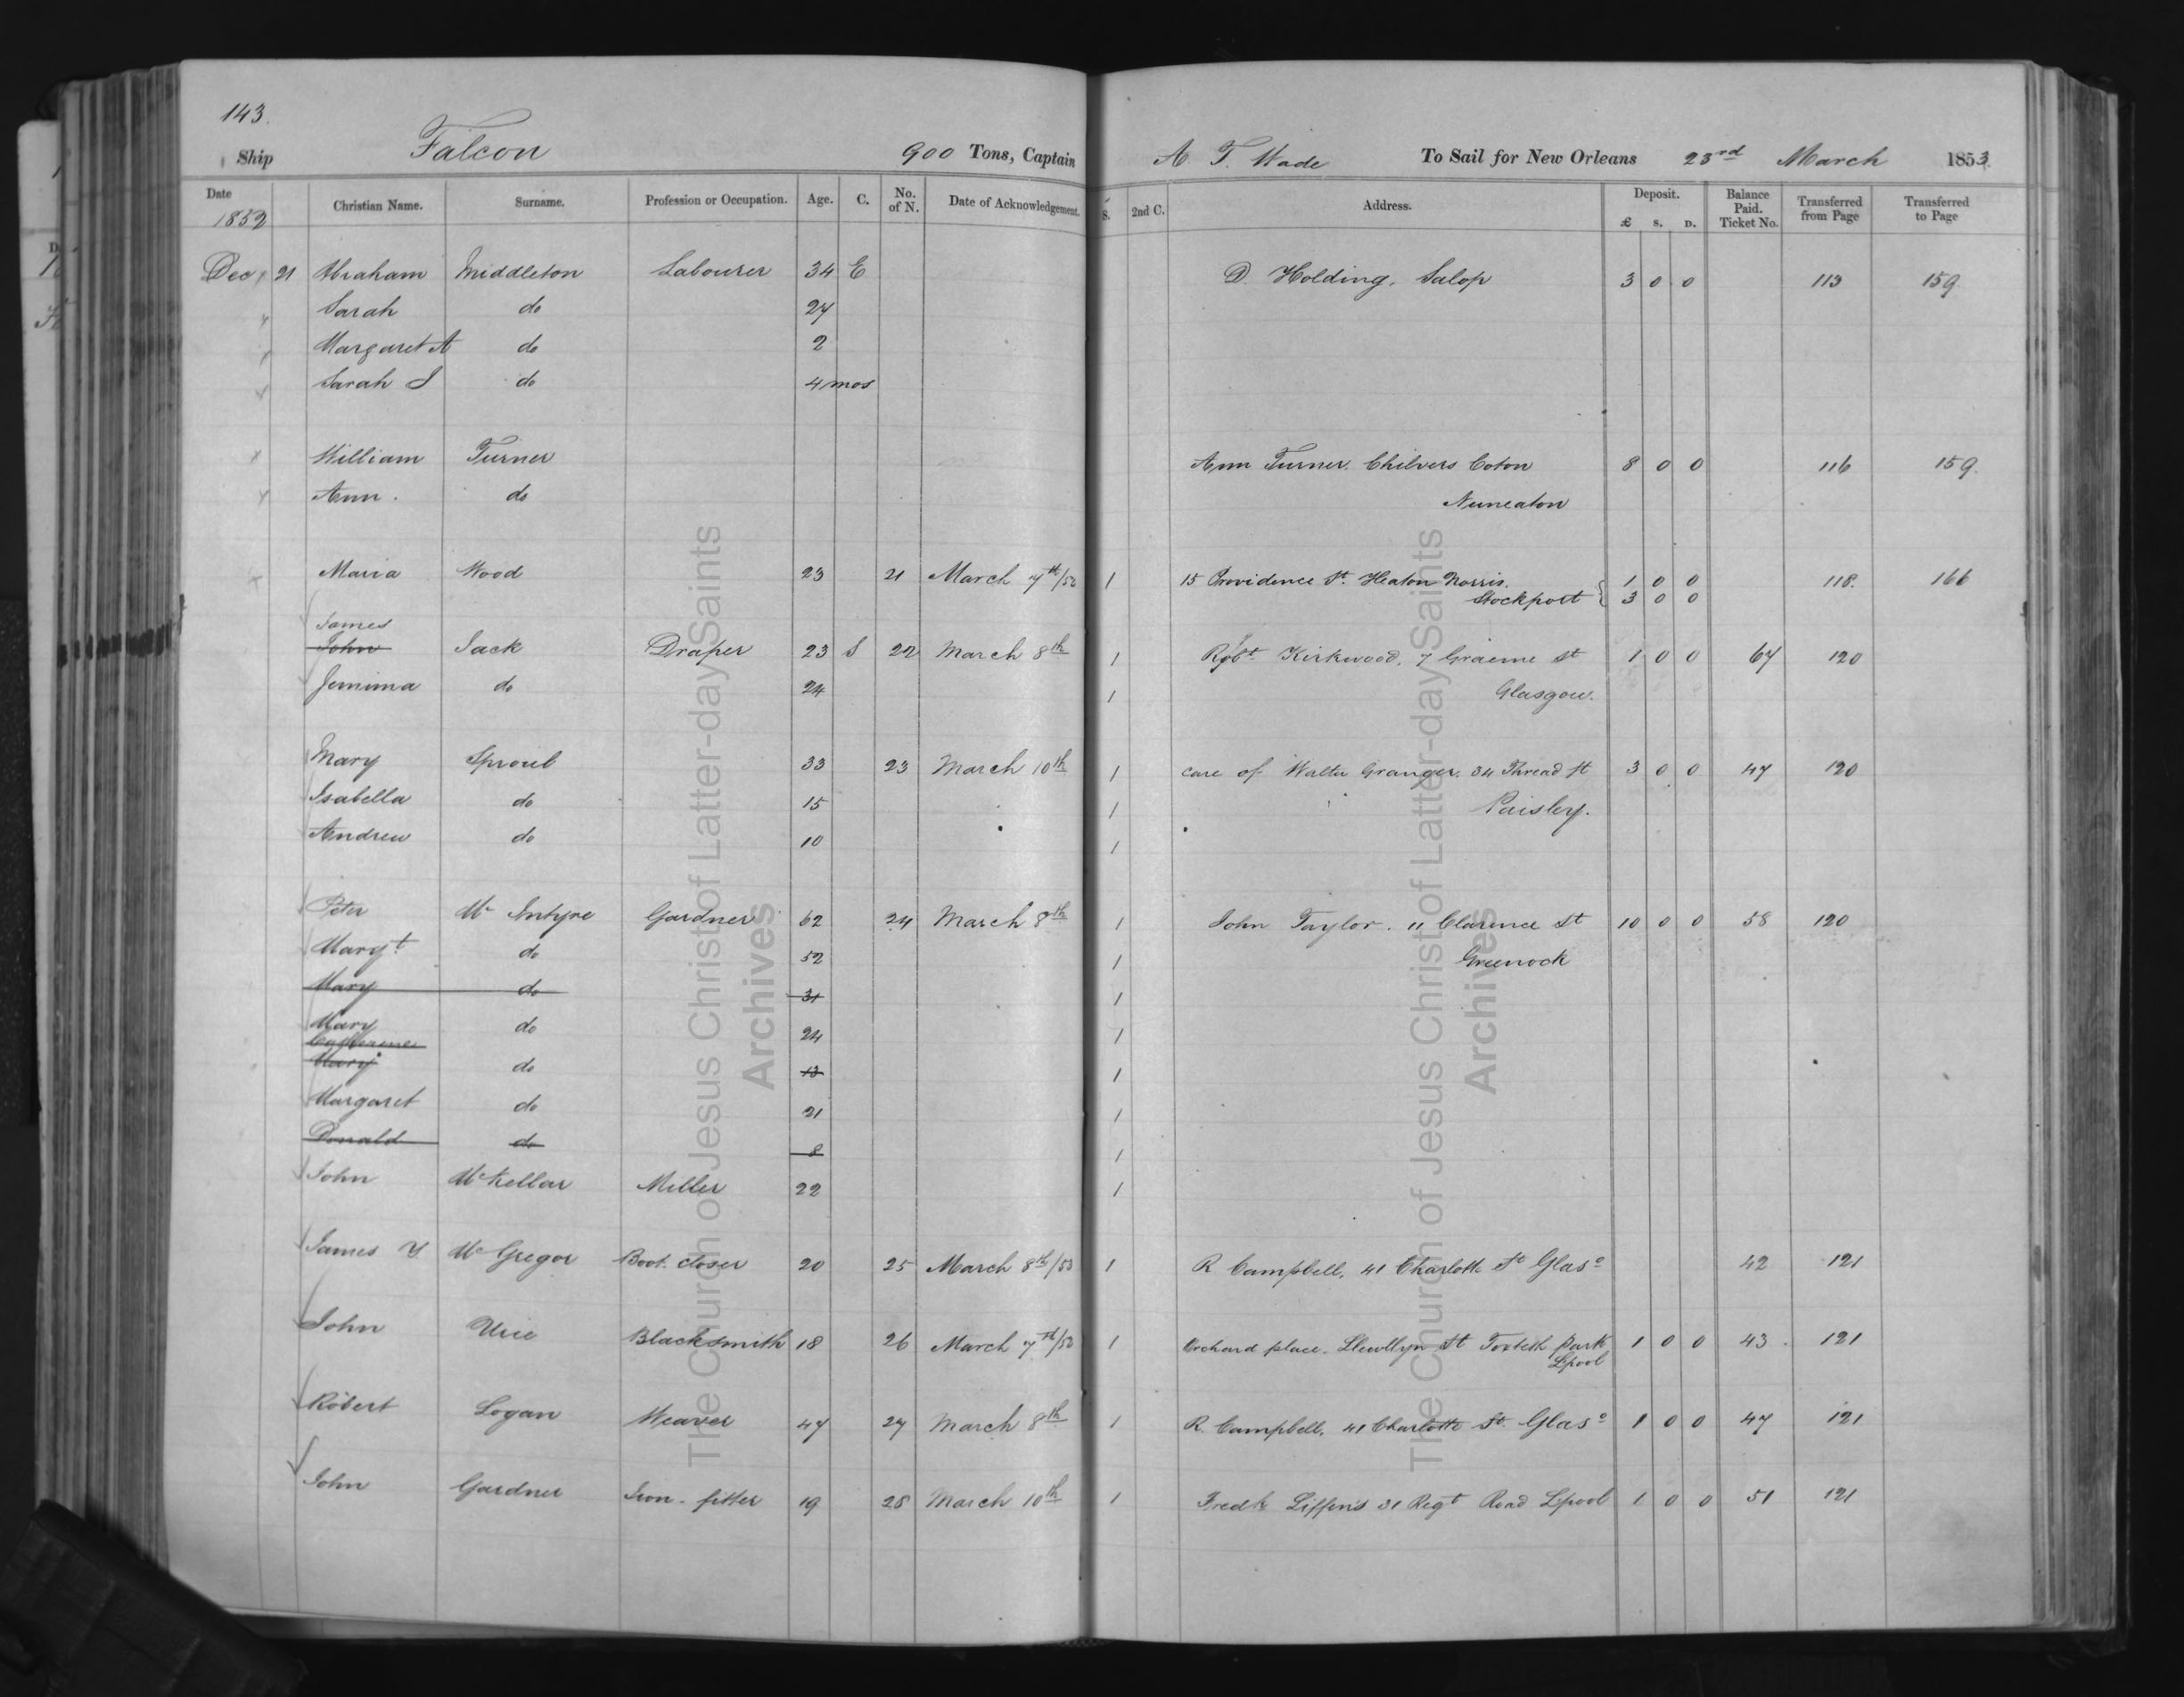 143.
Ship Falcon 900 Tons, Captain A. T. Wade To Sail for New Orleans 23rd March 1853
Date Christian Name. Surname. Profession or Occupation. Age. C. No. of N. Date of Acknowledgement. S. 2nd C. Address. Deposit. £ s. D. Balance Paid. Ticket No. Transferred from Page Transferred to Page
1852
Dec 21 Abraham Middleton Labourer 34 E D. Holding, Salop 3 0 0 113 159
Sarah do 27
Margaret A do 2
Sarah J do 4 mos
William Turner Ann Turner. Chilvers Coton 8 0 0 116 159.
Ann. do Nuneaton
Maria Wood 23 21 March 7th/53 1 15 Providence St. Heaton Norris. 1 0 0 118. 166
Stockport 3 0 0
James
John Jack Draper 23 S 22 March 8th 1 Robt. Kirkwood, 7 Graeme St 1 0 0 67 120
Jemima do 24 1 Glasgow.
Mary Sproul 33 23 March 10th 1 care of Walter Granger. 34 Thread St 3 0 0 47 120
Isabella do 15 1 Paisley.
Andrew do 10 1
Peter Mc Intyre Gardner 62 24 March 8th 1 John Taylor. 11 Clarence St 10 0 0 58 120
Margt do 52 1 Greenock
Mary do 31 1
Mary do 24 1
Catherine
Mary do 13 1
Margaret do 21 1
Donald do 8 1
John McKellar Miller 22 1
James Y. McGregor Boot. closer 20 25 March 8th/53 1 R Campbell, 41 Charlotte St Glaso 42 121
John Urie Blacksmith 18 26 March 7th/53 1 Orchard place. Llewllyn St Toxteth Park 1 0 0 43 121
Lpool
Robert Logan Weaver 47 27 March 8th 1 R. Campbell, 41 Charlotte St. Glaso 1 0 0 47 121
John Gardner Iron-fitter 19 28 March 10th 1 Fredk Liffens 31 Regt Road Lpool 1 0 0 51 121
The Church of Jesus Christ of Latter-day Saints
Archives
The Church of Jesus Christ of Latter-day Saints
Archives